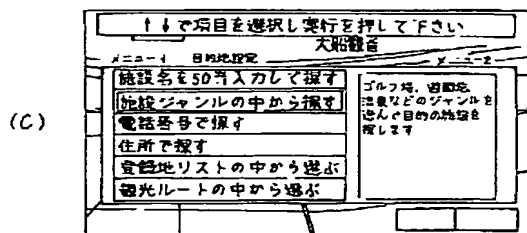 (C)
↑↓で項目を選択し実行を押して下さい
大船観音
メニュー1 目的地設定 メニュー2
施設名を50音入力して探す
施設ジャンルの中から探す
電話番号で探す
住所で探す
登録地リストの中から選ぶ
観光ルートの中から選ぶ
ゴルフ場、遊園地
温泉などのジャンルを
選んで目的の施設を
探します